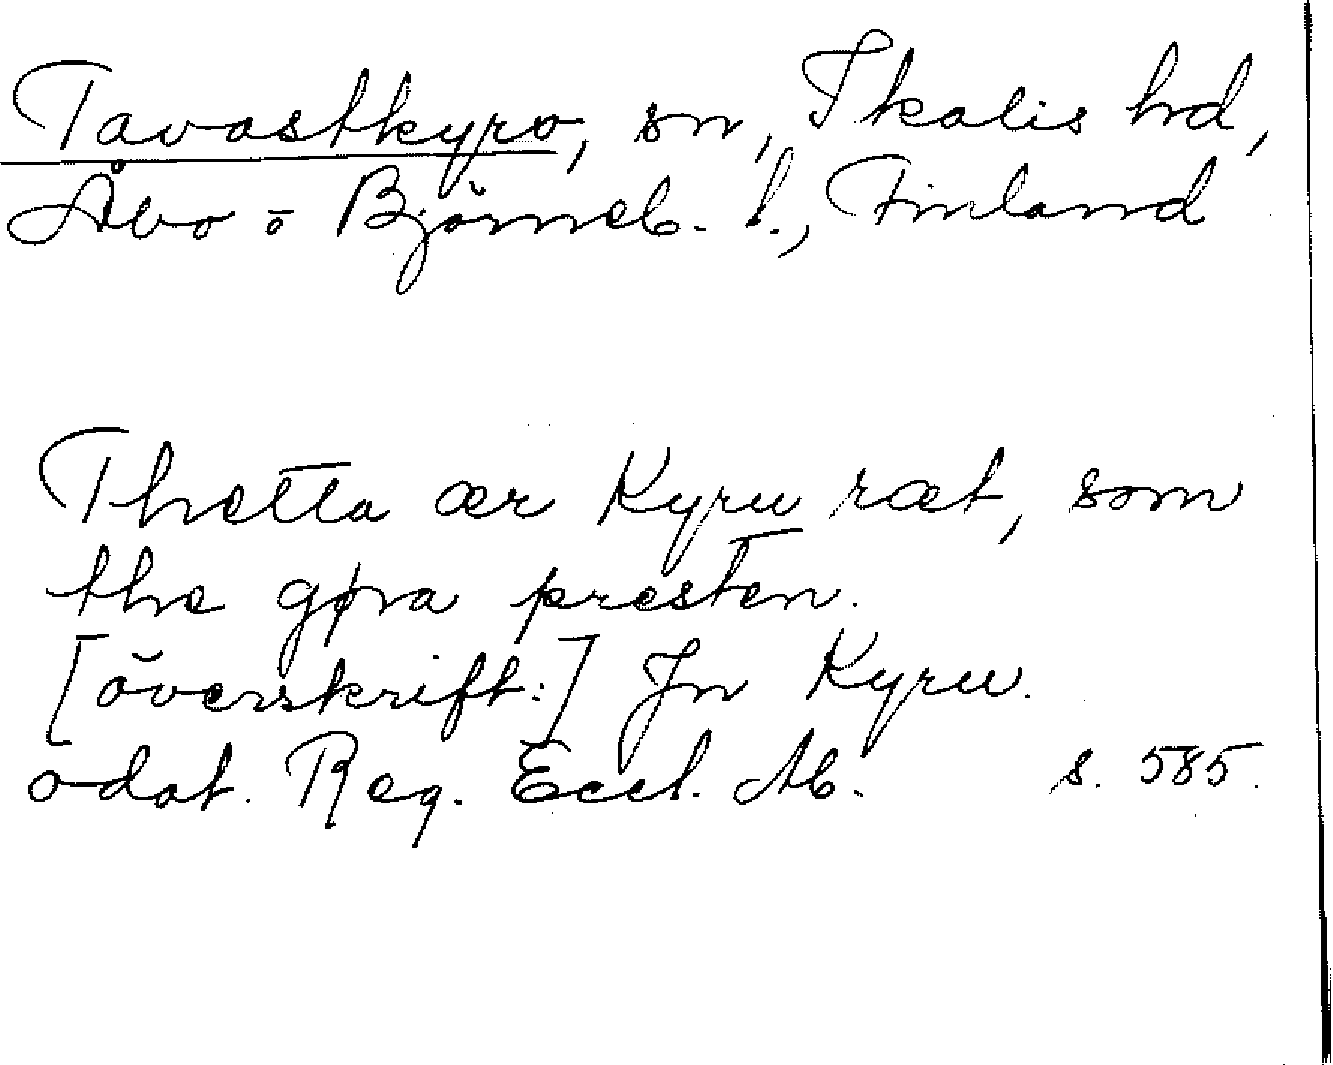 Tavastkyro, sn, Ikalis hd,
Åbo o Björneb. l., Finland
Thetta ær Kyru ræt, som
the gøra presten.
[överskrift:] Jn Kyru.
odat. Reg. Eccl. Ab. s. 585.